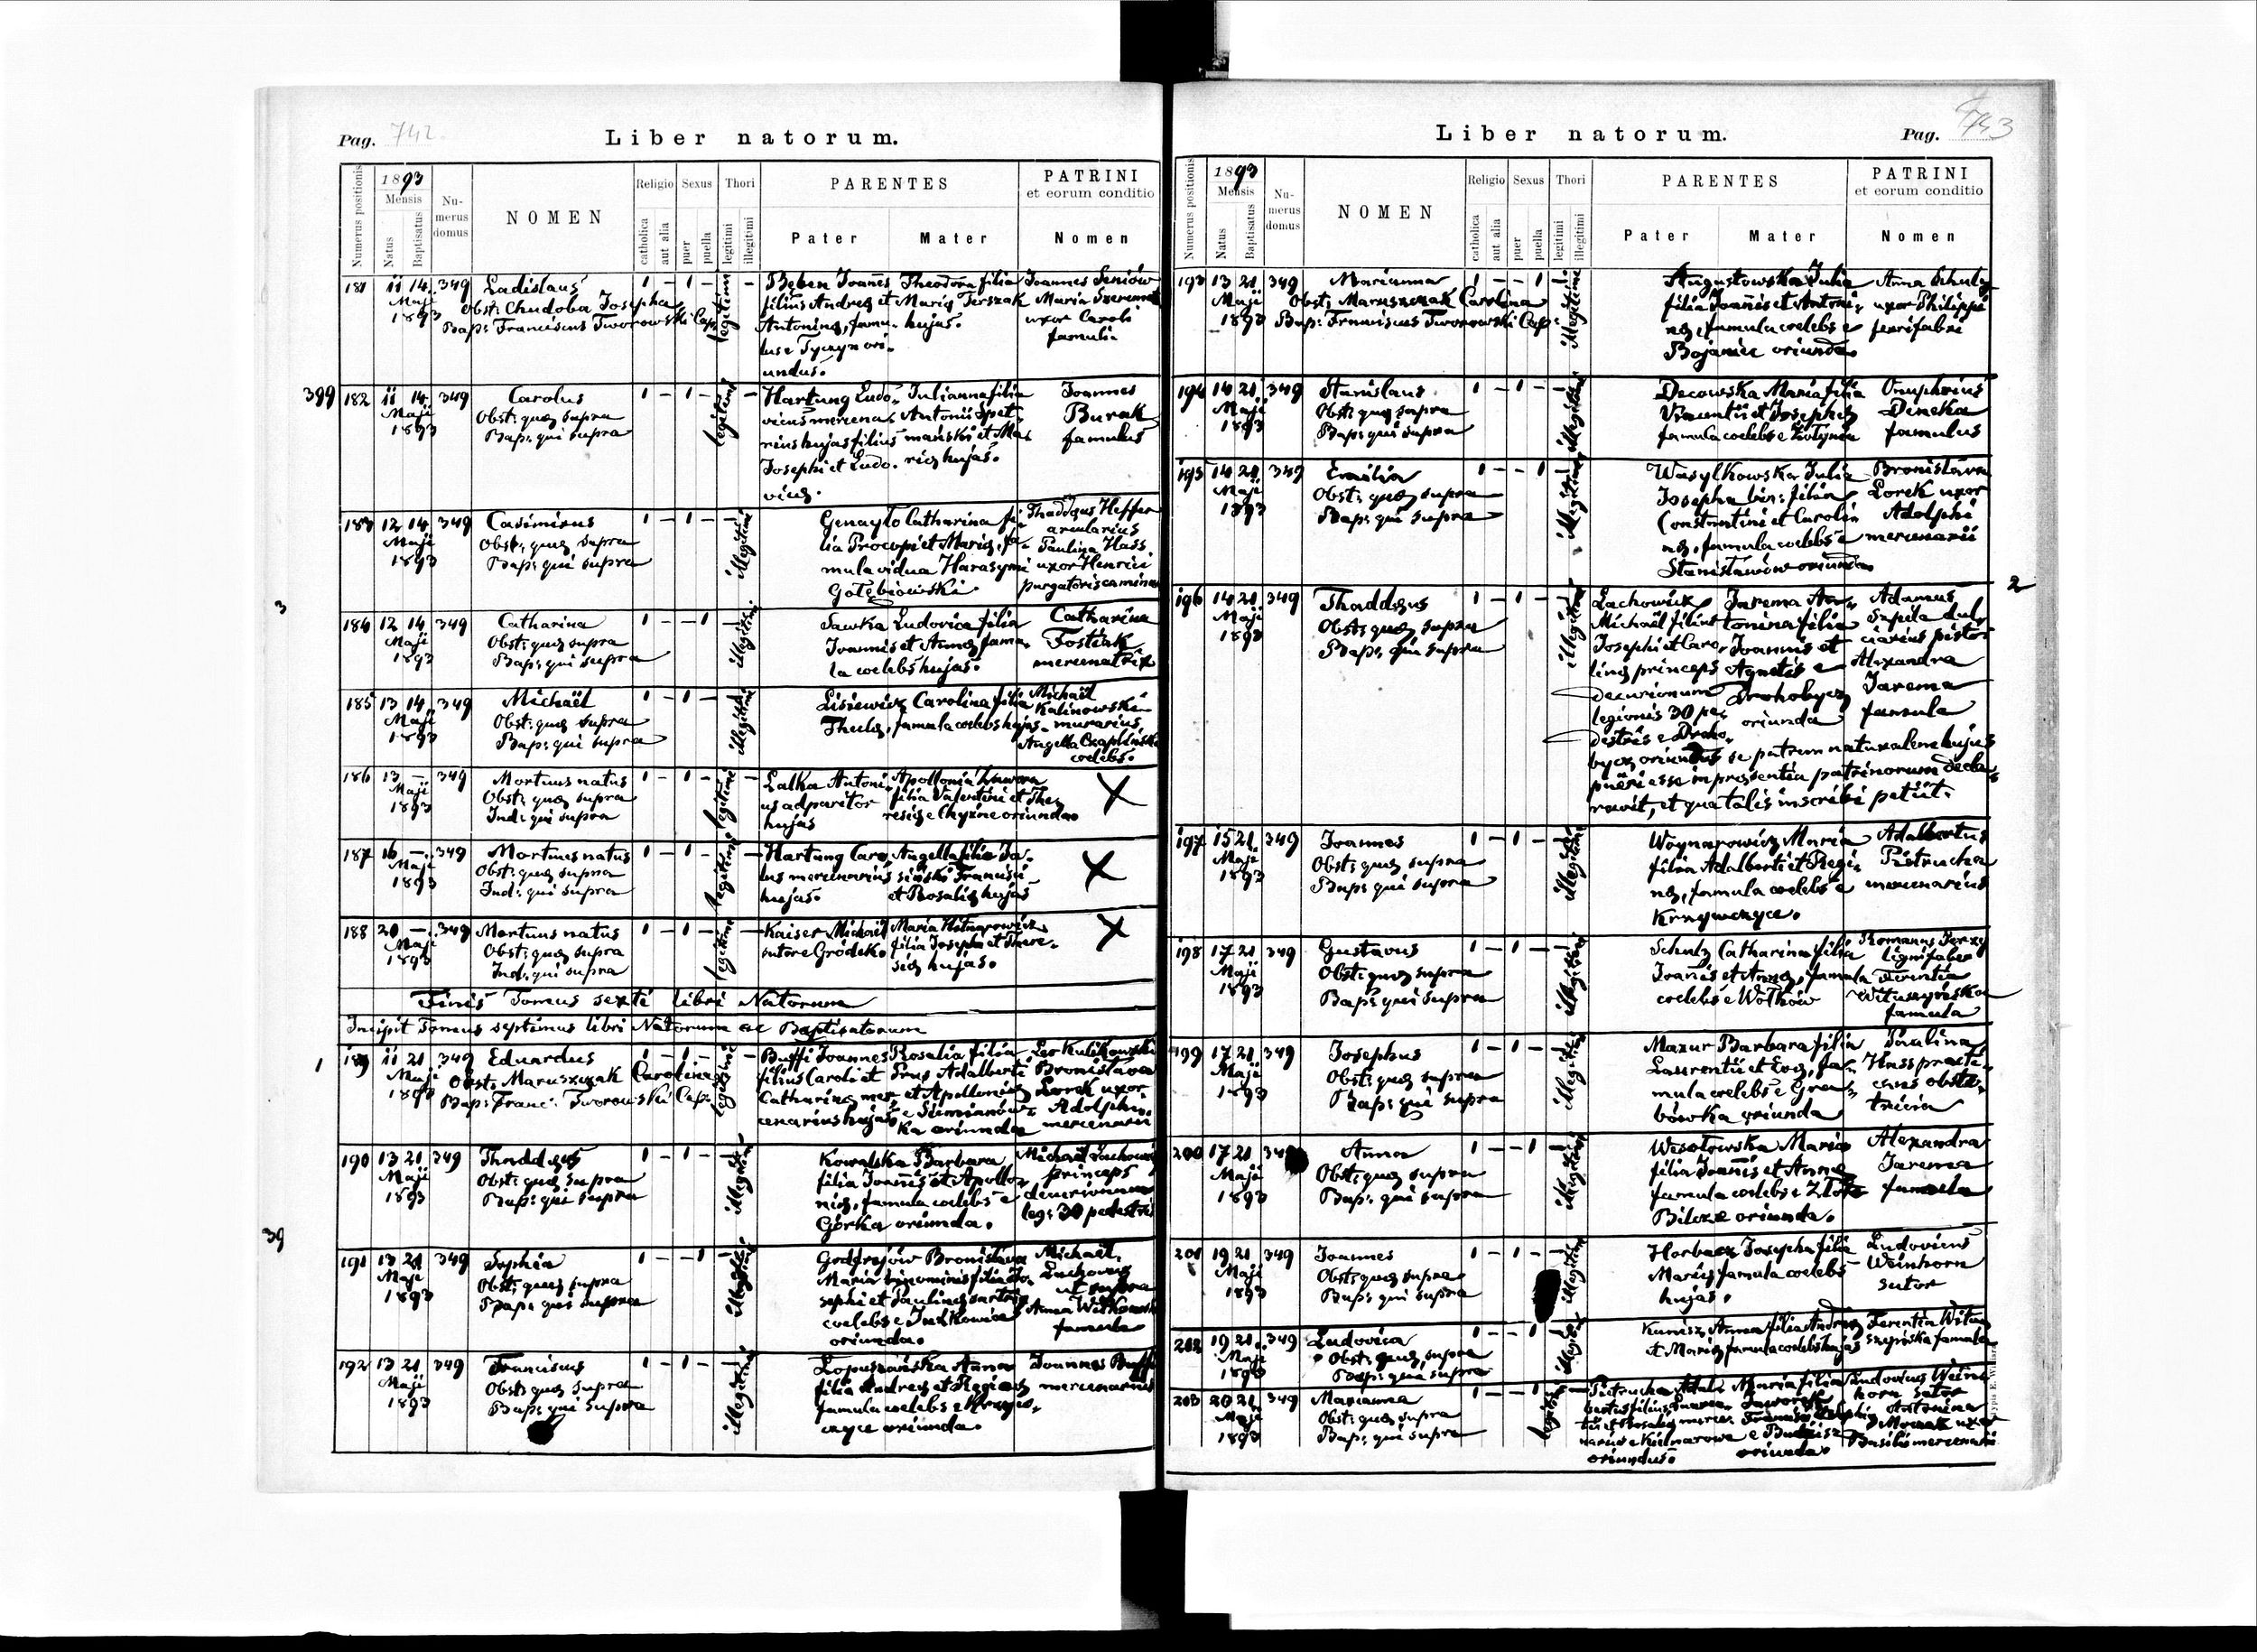 Pag. 742
Liber natorum.
Numerus positionis
1893
Mensis
Natus
Baptisatus
Nu-
merus
domus
NOMEN
Religio
catholica
aut alia
Sexus
puer
puella
Thori
legitimi
illegitimi
PARENTES
Pater
Mater
PATRINI
et eorum conditio
Nomen
181 11 14 349 Ladislaus 1 - 1 - legitimi -
Maji
1893
Obst: Chudoba Josepha
Bap: Franciscus Tworowski Cap.
Bęben Joannes
filius Andreę et
Antoninę, famu-
lus e Tyczyn ori-
undus.
Theodora filia
et Marię Terszak
hujas.
Joannes Seniów
Maria
uxor Caroli
famuli
399
182 11 14 349 Carolus 1 - 1 - legitimi -
Maji
1893
Obst: quę supra
Bap: qui supra
Hartung Ludo-
vicus mercena-
rius hujas filius
Josephi et Ludo-
vicę.
Julianna filia
Antonii Szpet
mański et Ma-
rię hujas.
Joannes
Burak
famulus
183 12 14 349 Casimirus 1 - 1 - - illegitimi
Maji
1893
Obst: quę supra
Bap: qui supra
Genayło Catharina fi-
lia Procopi et Marię, fa-
mula vidua Harasymi
Gołębiowski
Thaddęus Heffer
Paulina Hass
uxor Henrici
purgatoris camina
3
184 12 14 349 Catharina 1 - - 1 - illegitimi
Maji
1893
Obst: quę supra
Bap: qui supra
Sawka Ludovica filia
Joannis et Annę famu-
la coelebs hujas.
Catharina
Fostiak
mercenatrix
185 13 14 349 Michaël 1 - 1 - - illegitimi
Maji
1893
Obst: quę supra
Bap: qui supra
Lisiewicz Carolina filia
Theclę, famula coelebs hujas.
Michaël
Kalinowski
murarius
Angella Czaplińska
coelebs.
186 13 - 349 Mortuus natus 1 - 1 - legitimi -
Maji
1893
Obst: quę supra
Ind: qui supra
Lalka Antoni-
us adparitor
hujas
Apollonia
filia Valentini et The-
resię e Chyżne oriunda
X
187 16 - 349 Mortuus natus 1 - 1 - legitimi -
Maji
1893
Obst: quę supra
Ind: qui supra
Hartung Caro-
lus mercenarius
hujas.
Angella filia Ja-
siński Francisci
et Rosalię hujas
X
188 20 - 349 Mortuus natus 1 - 1 - legitimi -
Maji
1893
Obst: quę supra
Ind: qui supra
Kaiser Michaël
sutor e Gródek.
Maria
filia Josephi et There-
się hujas.
X
Finis Tomus sexti libri Natorum
Incipit Tomus septimus libri Natorum ac Baptisatorum
1
189 11 21 349 Eduardus 1 - 1 - legitimi -
Maji
1893
Obst: Maruszczak Carolina
Bap: Franc: Tworowski Cap.
Buffi Joannes
filius Caroli et
Catharinę mer-
cenarius hujas
Rosalia filia
Prus Adalberti
et Apollonię
e Siemianów-
ka oriunda
Leo Kulikowski
Bronislava
Lorek uxor
Adolphi
mercenarii
190 13 21 349 Thaddęus 1 - 1 - - illegitimi
Maji
1893
Obst: quę supra
Bap: qui supra
Kowalska Barbara
filia Joannis et Apollo-
nię, famula coelebs e
Górka oriunda.
Michaël Lachowicz
princeps
decurionum
leg: 30 pedestris
39
191 13 21 349 Sophia 1 - - 1 - illegitimi
Maji
1893
Obst: quę supra
Bap: qui supra
Bronislava
Maria binominis filia Jo-
sephi et Paulinę
coelebs e
oriunda.
Michaël
Lachowicz
ut supra
Anna Witkowska
famula
192 13 21 349 Franciscus 1 - 1 - - illegitimi
Maji
1893
Obst: quę supra
Bap: qui supra
Łopuszańska Anna
filia Andreę et Reginę
famula coelebs e Krzyw-
czyce oriunda.
Joannes Buffi
mercenarius
Liber natorum.
Pag. 743
Numerus positionis
1893
Mensis
Natus
Baptisatus
Nu-
merus
domus
NOMEN
Religio
catholica
aut alia
Sexus
puer
puella
Thori
legitimi
illegitimi
PARENTES
Pater
Mater
PATRINI
et eorum conditio
Nomen
193 13 21 349 Marianna 1 - - 1 - illegitimi
Maji
1893
Obst: Maruszczak Carolina
Bap: Franciscus Tworowski Cap:
Augustowska Julia
filia Joannis et Antoni-
nę, famula coelebs e
Bojaniec oriunda.
Anna Schulz
uxor Philippi
ferrifabri
194 14 21 349 Stanislaus 1 - 1 - - illegitimi
Maji
1893
Obst: quę supra
Bap: qui supra
Decowska Maria filia
Vincentii et Josephę
famula coelebs e Żołynia
Onuphrius
Dineka
famulus
195 14 21 349 Emilia 1 - - 1 - illegitimi
Maji
1893
Obst: quę supra
Bap: qui supra
Wasylkowska Julia
Josepha bin: filia
Constantini et Caroli-
nę, famula coelebs e
Stanisławów oriunda
Bronislava
Lorek uxor
Adolphi
mercenarii
2
196 14 21 349 Thaddęus 1 - 1 - - illegitimi
Maji
1893
Obst: quę supra
Bap: qui supra
Lachowicz
Michaël filius
Josephi et Caro-
linę princeps
decurionum
legionis 30 pe-
destris e Droho-
bycz oriundus se patrem naturalem hujus
pueri esse in pręsentia patrinorum decla-
ravit, et qua talis inscribi petiit.
Jarema An-
tonina filia
Joannis et
Agnetis e
Drohobycz
oriunda
Adamus
Sapila dul-
ciarius pistor
Alexandra
Jarema
famula
197 15 21 349 Joannes 1 - 1 - - illegitimi
Maji
1893
Obst: quę supra
Bap: qui supra
Woynarowicz Maria
filia Adalberti et Regi-
nę, famula coelebs e
Krzywczyce.
Adalbertus
Pietrucha
mercenarius
198 17 21 349 Gustavus 1 - 1 - - illegitimi
Maji
1893
Obst: quę supra
Bap: qui supra
Schulz Catharina filia
Joannis et Annę, famula
coelebs e Wołków
Romanus Jerzy
lignifaber
Terentia
Wituszyńska
famula
199 17 21 349 Josephus 1 - 1 - - illegitimi
Maji
1893
Obst: quę supra
Bap: qui supra
Mazur Barbara filia
Laurentii et Evę, fa-
mula coelebs e Grzy-
bówka oriunda
Paulina
Hass practi-
cans obste-
tricia
200 17 21 349 Anna 1 - - 1 - illegitimi
Maji
1893
Obst: quę supra
Bap: qui supra
Wesołowska Maria
filia Joannis et Annę
famula coelebs e Złote
Bilcze oriunda.
Alexandra
Jarema
famula
201 19 21 349 Joannes 1 - 1 - - illegitimi
Maji
1893
Obst: quę supra
Bap: qui supra
Horbacz Josepha filia
Marię famula coelebs
hujas.
Ludovicus
Weinhorn
sutor
202 19 21 349 Ludovica 1 - - 1 - illegitimi
Maji
1893
Obst: quę supra
Bap: qui supra
Kunisz Anna filia Andreę
et Marię famula coelebs hujas
Terentia Witu-
szyńska famula
203 20 21 349 Marianna 1 - - 1 legitimi -
Maji
1893
Obst: quę supra
Bap: qui supra
Pietrucha Adal-
bertus filius
tii et Rosalię merce-
narius e Kielnarowa
oriundus.
Maria filia
Jaworsk
e
oriunda.
Ludovicus Wein-
horn sutor
Antonina
uxor
Basilii mercenarii